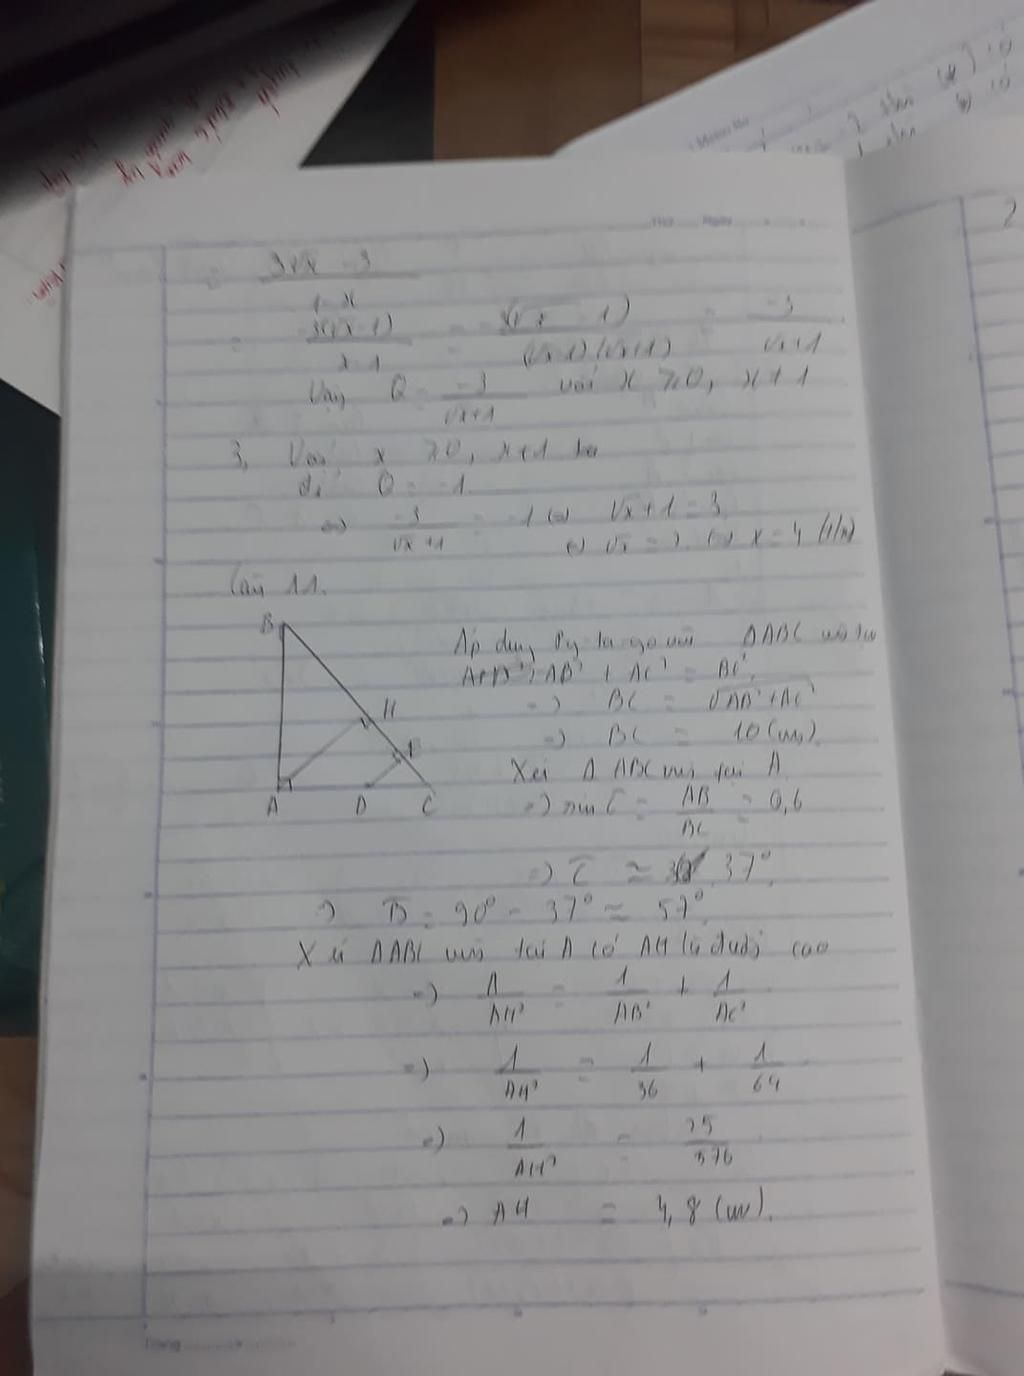 = 3√x - 3 / 1-x
= -3(√x-1) / x-1 = -3(√x-1) / (√x-1)(√x+1) = -3 / √x+1
Vậy Q = -3 / √x+1 với x ≥ 0, x ≠ 1
3, Với x ≥ 0, x ≠ 1
để Q = -1
<=> -3 / √x+1 = -1 <=> √x + 1 = 3
<=> √x = 2 <=> x = 4 (t/m)
Câu 11.
B
H
A D C
Áp dụng Py-ta-go với ΔABC
AB² + AC² = BC²
=> BC = √AB²+AC²
=> BC = 10 (cm)
Xét Δ ABC vuông tại A
=> sin C = AB / BC = 0,6
=> C ≃ 37°
=> B = 90° - 37° ≃ 57°
Xét ΔABC vuông tại A có AH là đường cao
=> 1 / AH² = 1 / AB² + 1 / AC²
=> 1 / AH² = 1 / 36 + 1 / 64
=> 1 / AH² = 25 / 576
=> AH = 4,8 (cm).
Trang